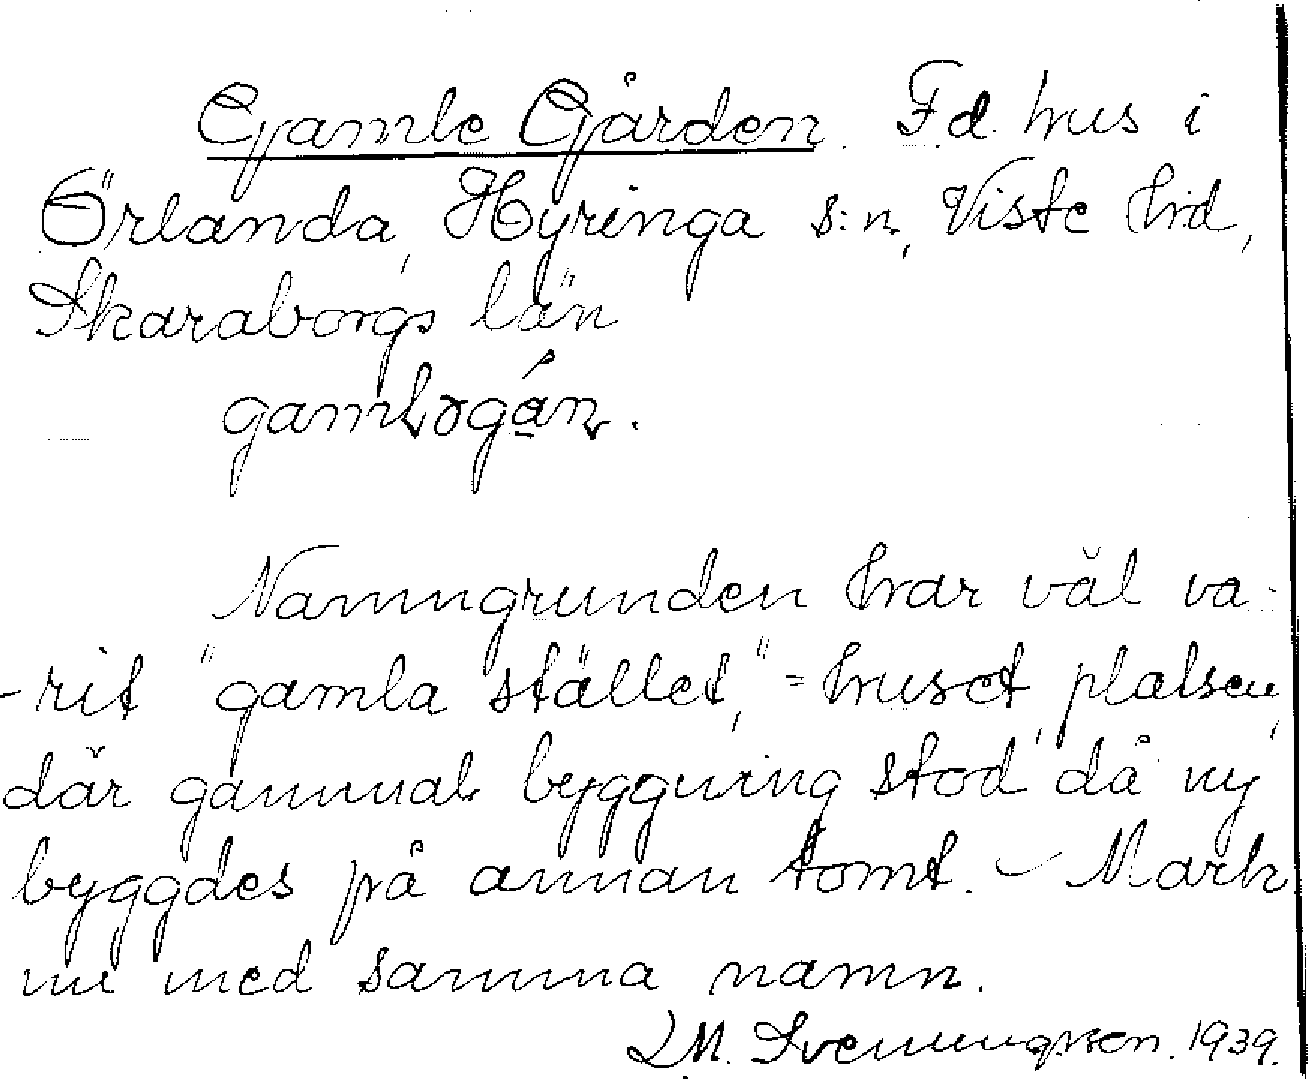 Gamle Gården. Fd. hus i
Örlanda, Hyringa s:n, Viste hrd,
Skaraborgs län
Namngrunden har väl va-
-rit "gamla stället," = huset, platsen,
där gammal byggning stod då ny
byggdes på annan tomt. – Mark
nu med samma namn.
L M. Svenungsson. 1939.